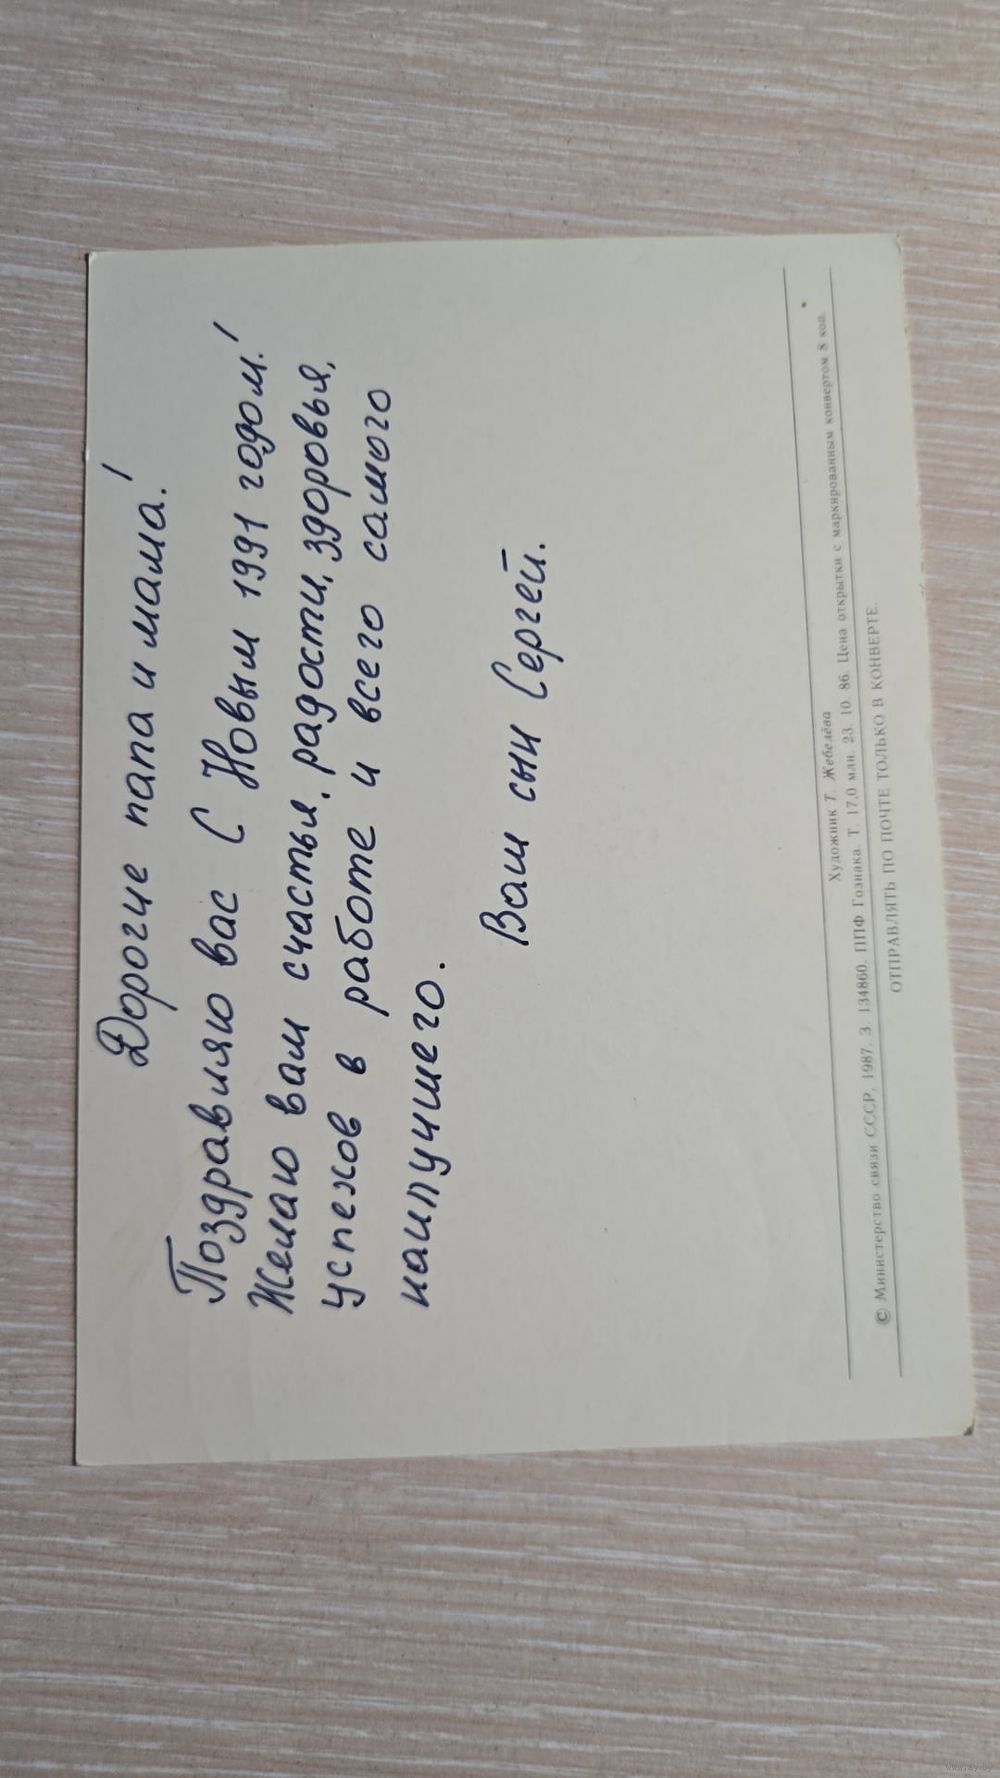 Дорогие папа и мама!
Поздравляю вас С Новым 1991 годом!
Желаю вам счастья, радости, здоровья,
успехов в работе и всего самого
наилучшего.
Ваш сын Сергей.
Художник Т. Жебелёва
© Министерство связи СССР, 1987. З. 134860. ППФ Гознака. Т. 17,0 млн. 23. 10. 86. Цена открытки с маркированным конвертом 8 коп.
ОТПРАВЛЯТЬ ПО ПОЧТЕ ТОЛЬКО В КОНВЕРТЕ.